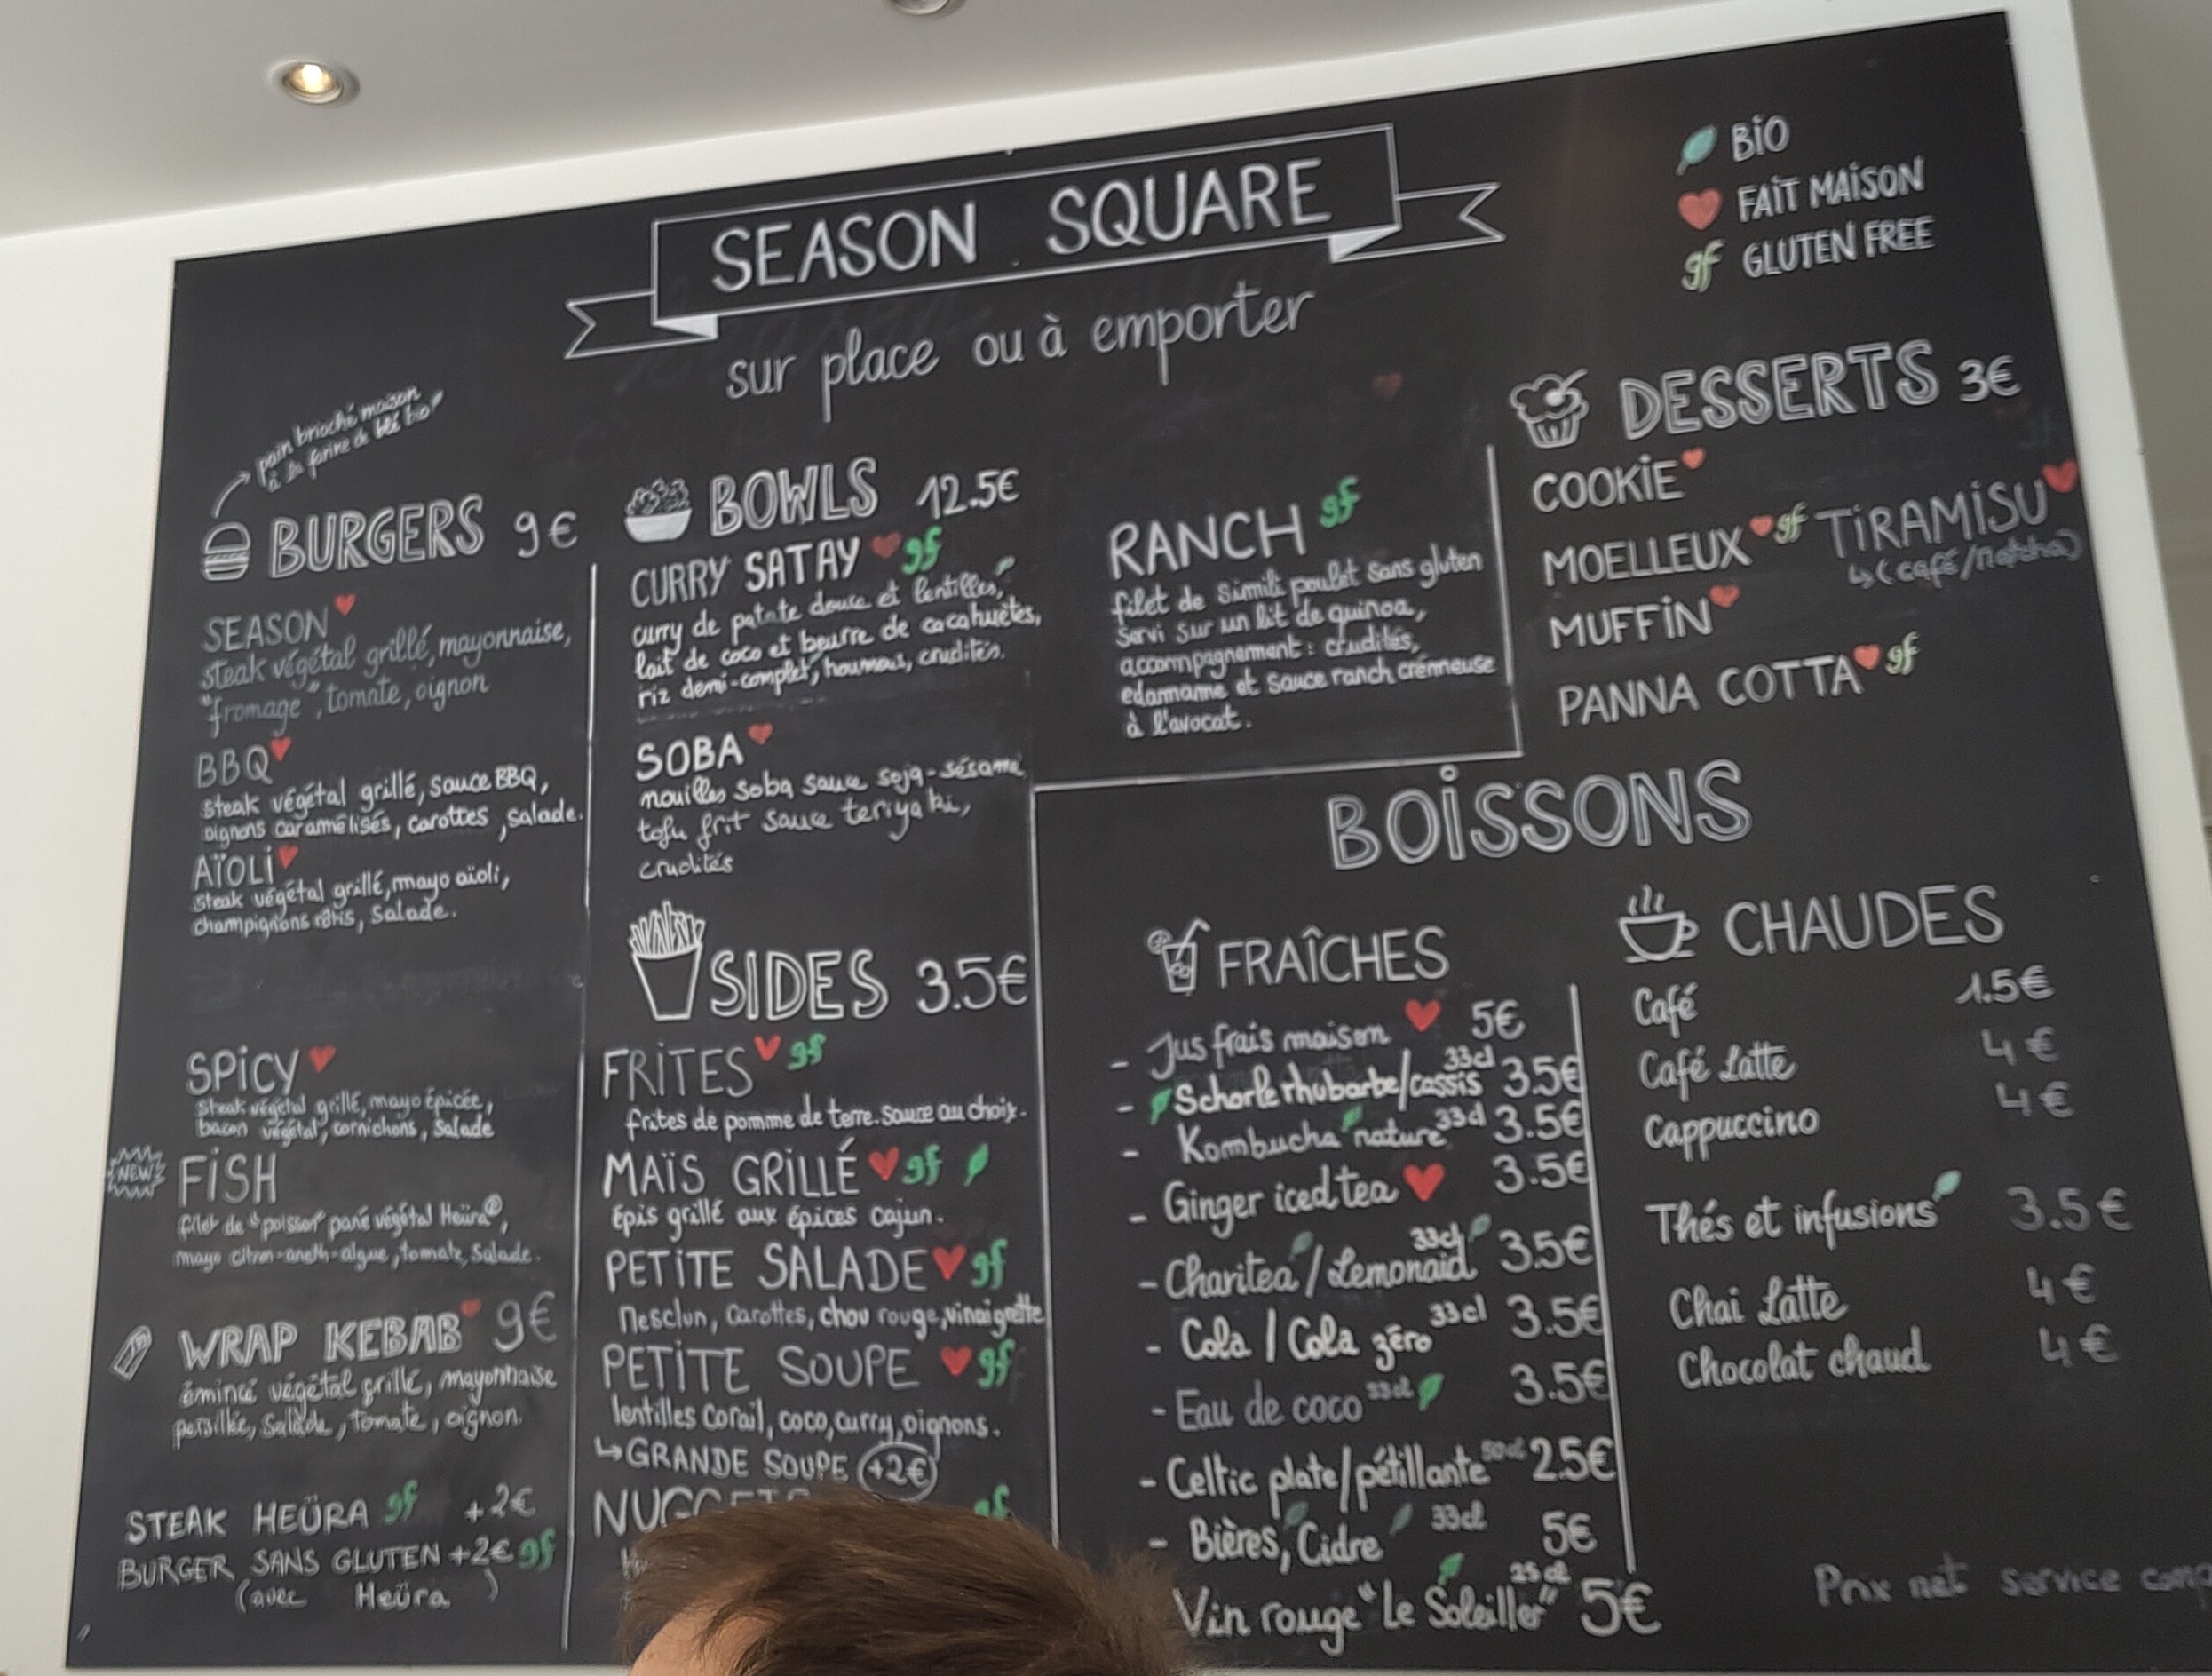 SEASON SQUARE
sur place ou à emporter
BIO
FAIT MAISON
gf GLUTEN FREE
pain brioché maison
à la farine de blé bio
BURGERS 9€
SEASON
steak végétal grillé, mayonnaise,
"fromage", tomate, oignon
BBQ
steak végétal grillé, sauce BBQ,
oignons caramélisés, carottes, salade.
AÏOLI
steak végétal grillé, mayo aïoli,
champignons rôtis, salade.
SPICY
steak végétal grillé, mayo épicée,
bacon végétal, cornichons, salade
NEW
FISH
filet de "poisson" pané végétal Heüra®,
mayo citron-aneth-algue, tomate, salade.
WRAP KEBAB 9€
émincé végétal grillé, mayonnaise
persillée, salade, tomate, oignon.
STEAK HEÜRA gf +2€
BURGER SANS GLUTEN +2€ gf
(avec Heüra)
BOWLS 12.5€
CURRY SATAY gf
curry de patate douce et lentilles,
lait de coco et beurre de cacahuètes,
riz demi-complet, houmous, crudités.
SOBA
nouilles soba sauce soja-sésame
tofu frit sauce teriyaki,
crudités
SIDES 3.5€
FRITES gf
frites de pomme de terre. sauce au choix.
MAÏS GRILLÉ gf
épis grillé aux épices cajun.
PETITE SALADE gf
Mesclun, carottes, chou rouge, vinaigrette
PETITE SOUPE gf
lentilles corail, coco, curry, oignons.
↳GRANDE SOUPE +2€
gf
RANCH gf
filet de simili poulet sans gluten
servi sur un lit de quinoa,
accompagnement : crudités,
edamame et sauce ranch crémeuse
à l'avocat.
DESSERTS 3€
COOKIE
MOELLEUX gf TIRAMISU
↳(café/matcha)
MUFFIN
PANNA COTTA gf
BOISSONS
FRAÎCHES
- Jus frais maison 5€
- Schorle rhubarbe/cassis 33cl 3.5€
- Kombucha nature 33cl 3.5€
- Ginger iced tea 3.5€
- Charitea / Lemonaid 33cl 3.5€
- Cola / Cola zéro 33cl 3.5€
- Eau de coco 33cl 3.5€
- Celtic plate/pétillante 50cl 2.5€
- Bières, Cidre 33cl 5€
Vin rouge "Le Soleiller" 25cl 5€
CHAUDES
Café 1.5€
Café Latte 4€
Cappuccino 4€
Thés et infusions 3.5€
Chai Latte 4€
Chocolat chaud 4€
Prix net service